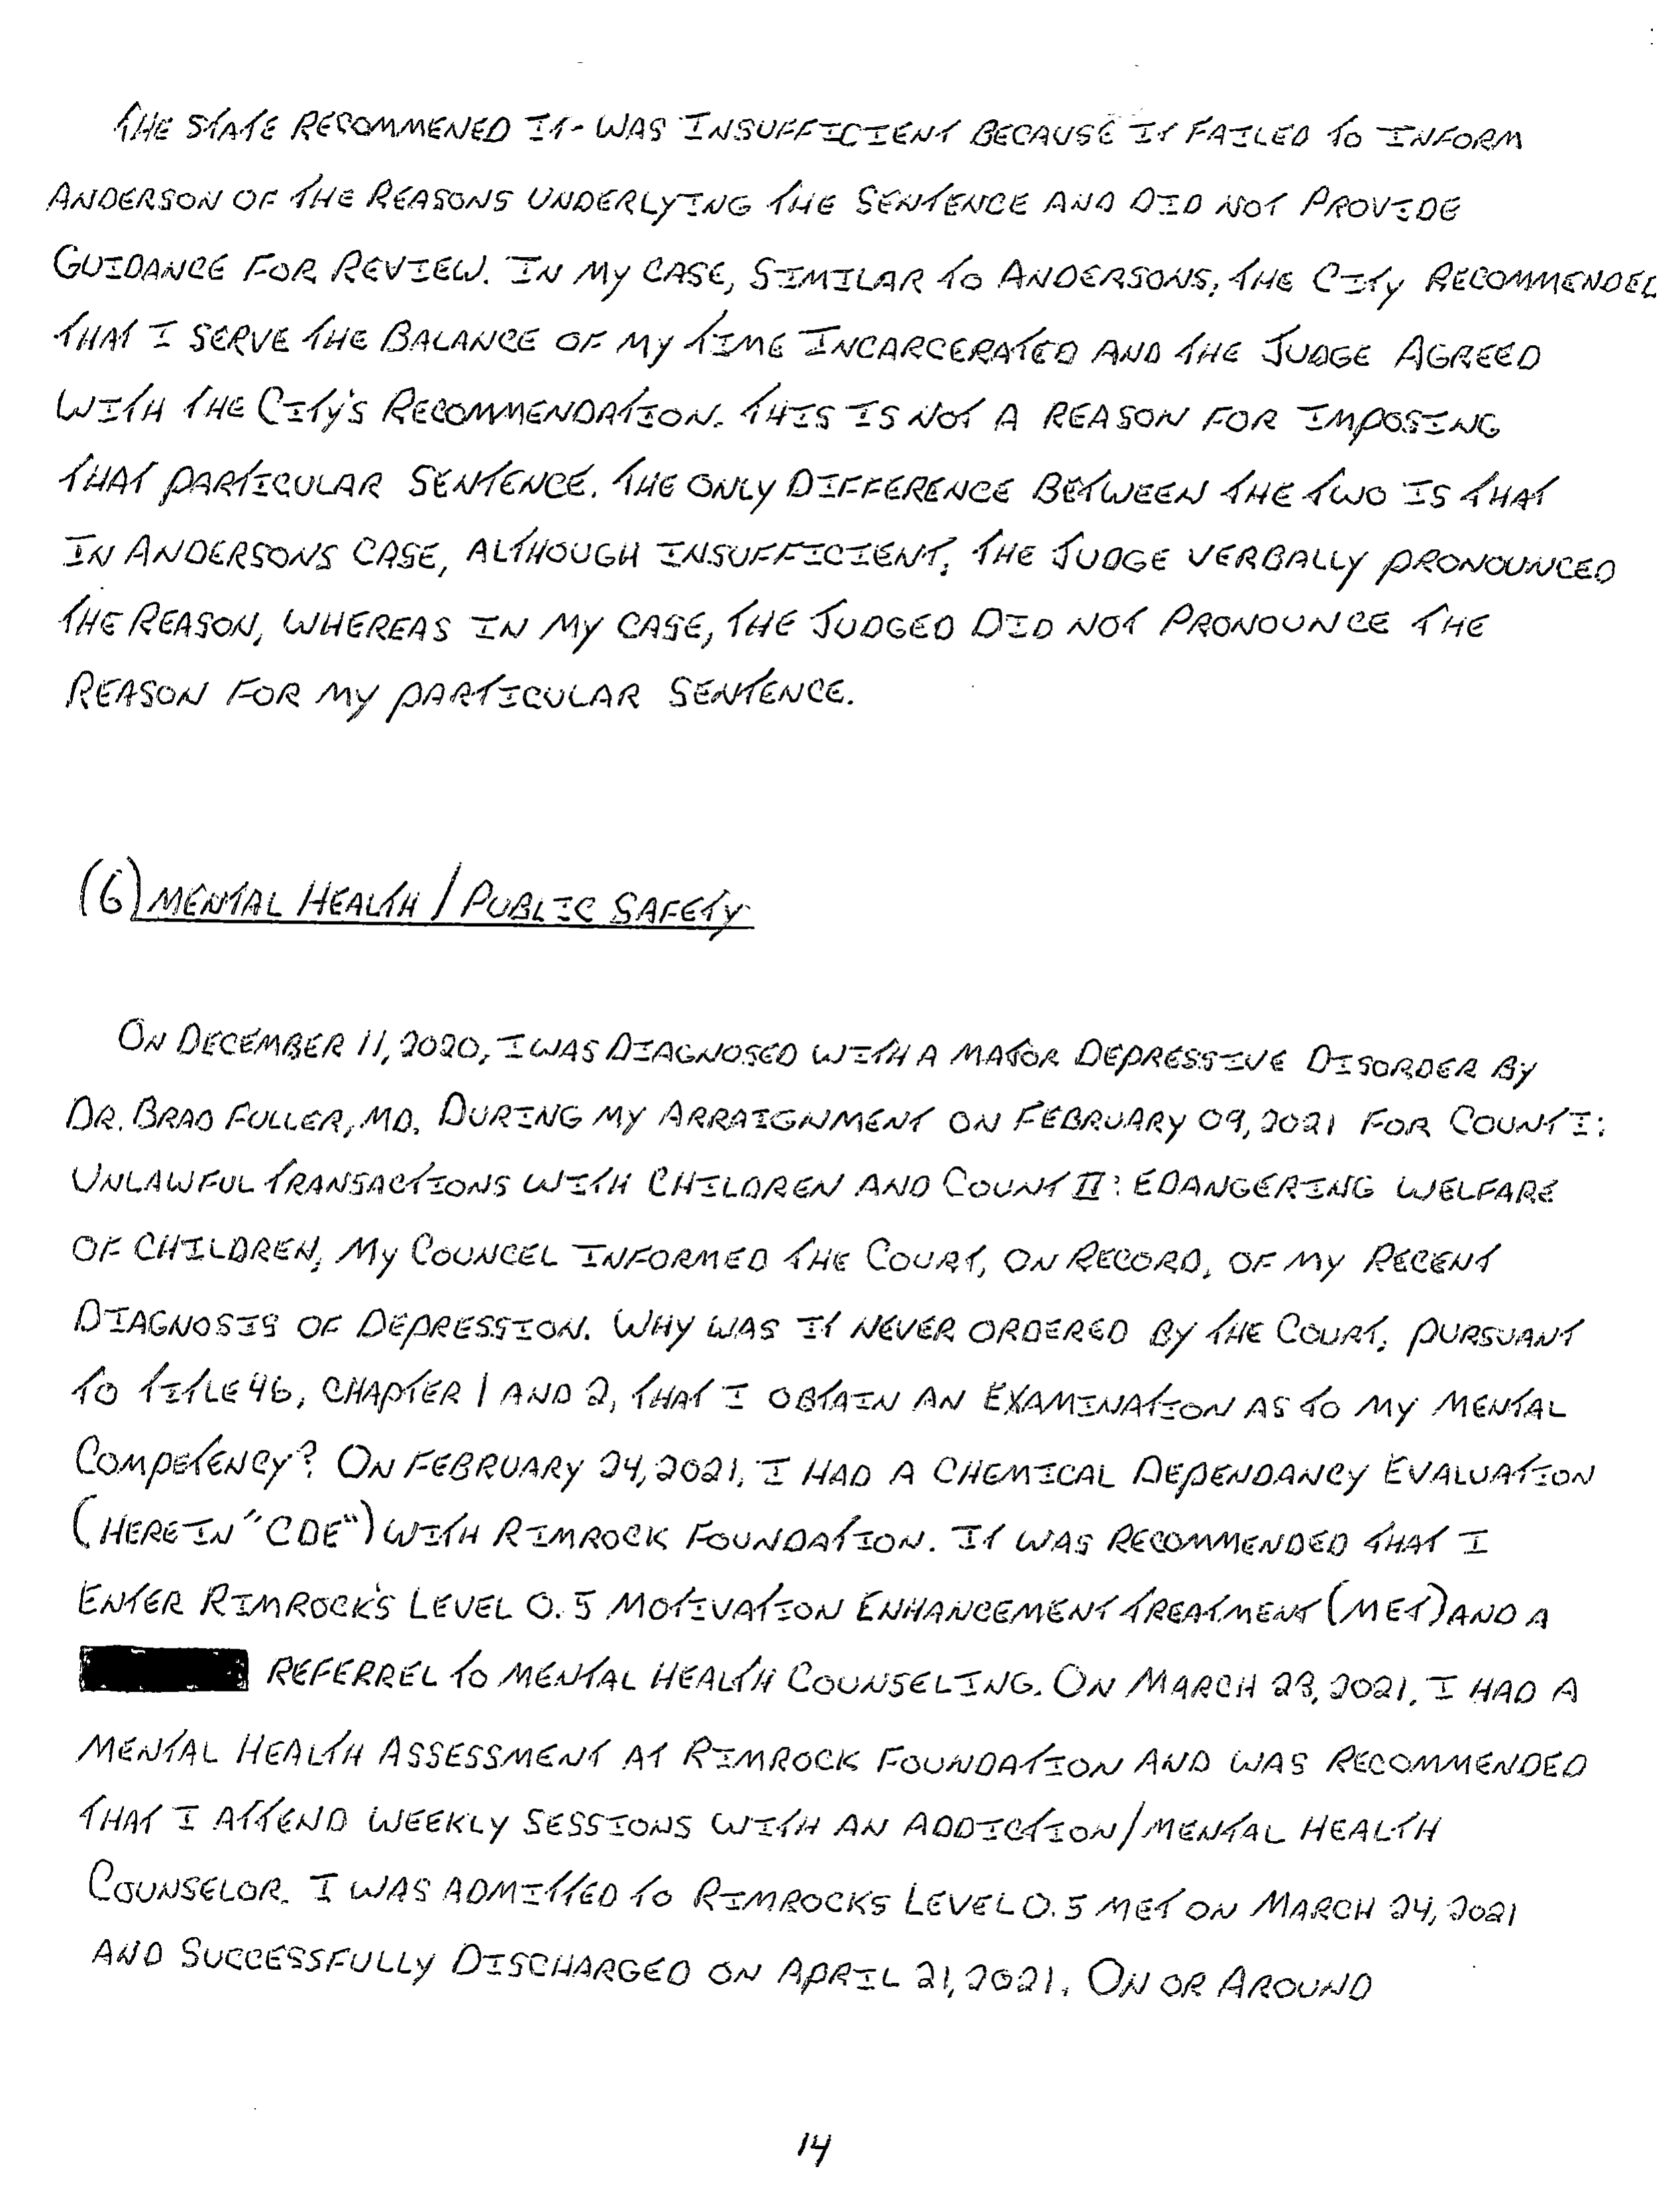 THE STATE RECOMMENED IT- WAS INSUFFICIENT BECAUSE IT FAILED TO INFORM
ANDERSON OF THE REASONS UNDERLYING THE SENTENCE AND DID NOT PROVIDE
GUIDANCE FOR REVIEW. IN MY CASE, SIMILAR TO ANDERSONS, THE CITY RECOMMENDED
THAT I SERVE THE BALANCE OF MY TIME INCARCERATED AND THE JUDGE AGREED
WITH THE CITY'S RECOMMENDATION. THIS IS NOT A REASON FOR IMPOSING
THAT PARTICULAR SENTENCE. THE ONLY DIFFERENCE BETWEEN THE TWO IS THAT
IN ANDERSONS CASE, ALTHOUGH INSUFFICIENT, THE JUDGE VERBALLY PRONOUNCED
THE REASON, WHEREAS IN MY CASE, THE JUDGED DID NOT PRONOUNCE THE
REASON FOR MY PARTICULAR SENTENCE.
(6) MENTAL HEALTH / PUBLIC SAFETY
ON DECEMBER 11, 2020, I WAS DIAGNOSED WITH A MAJOR DEPRESSIVE DISORDER BY
DR. BRAD FULLER, MD. DURING MY ARRAIGNMENT ON FEBRUARY 09, 2021 FOR COUNT I:
UNLAWFUL TRANSACTIONS WITH CHILDREN AND COUNT II: EDANGERING WELFARE
OF CHILDREN, MY COUNCEL INFORMED THE COURT, ON RECORD, OF MY RECENT
DIAGNOSIS OF DEPRESSION. WHY WAS IT NEVER ORDERED BY THE COURT, PURSUANT
TO TITLE 46, CHAPTER 1 AND 2, THAT I OBTAIN AN EXAMINATION AS TO MY MENTAL
COMPETENCY? ON FEBRUARY 24, 2021, I HAD A CHEMICAL DEPENDANCY EVALUATION
(HEREIN "CDE") WITH RIMROCK FOUNDATION. IT WAS RECOMMENDED THAT I
ENTER RIMROCK'S LEVEL 0.5 MOTIVATION ENHANCEMENT TREATMENT (MET) AND A
REFERREL TO MENTAL HEALTH COUNSELING. ON MARCH 23, 2021, I HAD A
MENTAL HEALTH ASSESSMENT AT RIMROCK FOUNDATION AND WAS RECOMMENDED
THAT I ATTEND WEEKLY SESSIONS WITH AN ADDICTION/MENTAL HEALTH
COUNSELOR. I WAS ADMITTED TO RIMROCKS LEVEL 0.5 MET ON MARCH 24, 2021
AND SUCCESSFULLY DISCHARGED ON APRIL 21, 2021. ON OR AROUND
14